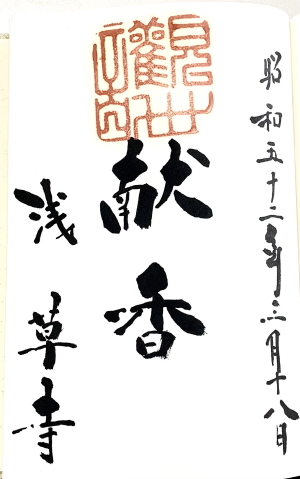 昭和五十二年三月十八日
献香
浅草寺